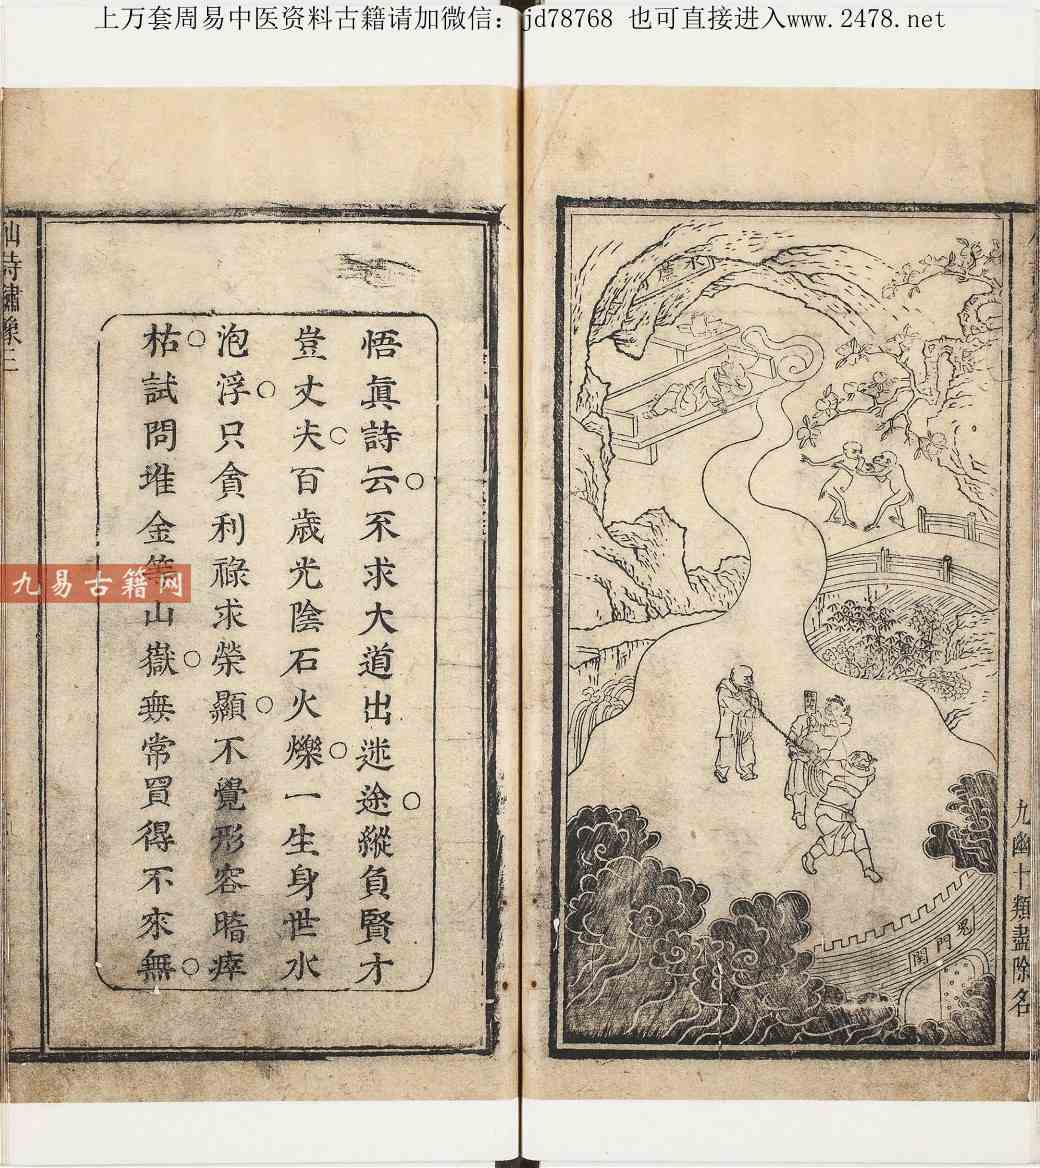 上万套周易中医资料古籍请加微信：jd78768 也可直接进入www.2478.net
鬼門関
九幽十類盡除名
悟眞詩云不求大道出迷途縱負賢才
豈丈夫百歲光陰石火爍一生身世水
泡浮只貪利祿求榮顯不覺形容暗瘁
枯試問堆金等山嶽無常買得不來無
仙詩繡像三
九易古籍网